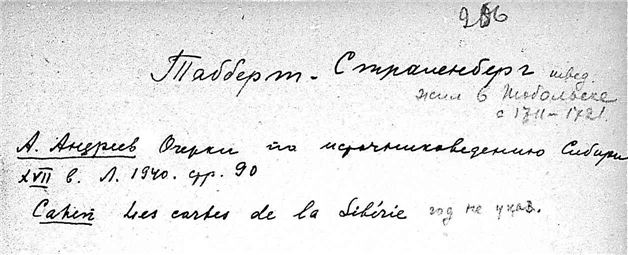 206
Табберт - Страленберг швед.
жил в Тобольске
с 1711 - 1721.
А. Андреев Очерки по источниковедению Сибири
XVII в. Л. 1940. стр. 90
Cahen Les cartes de la Sibérie год не указ.